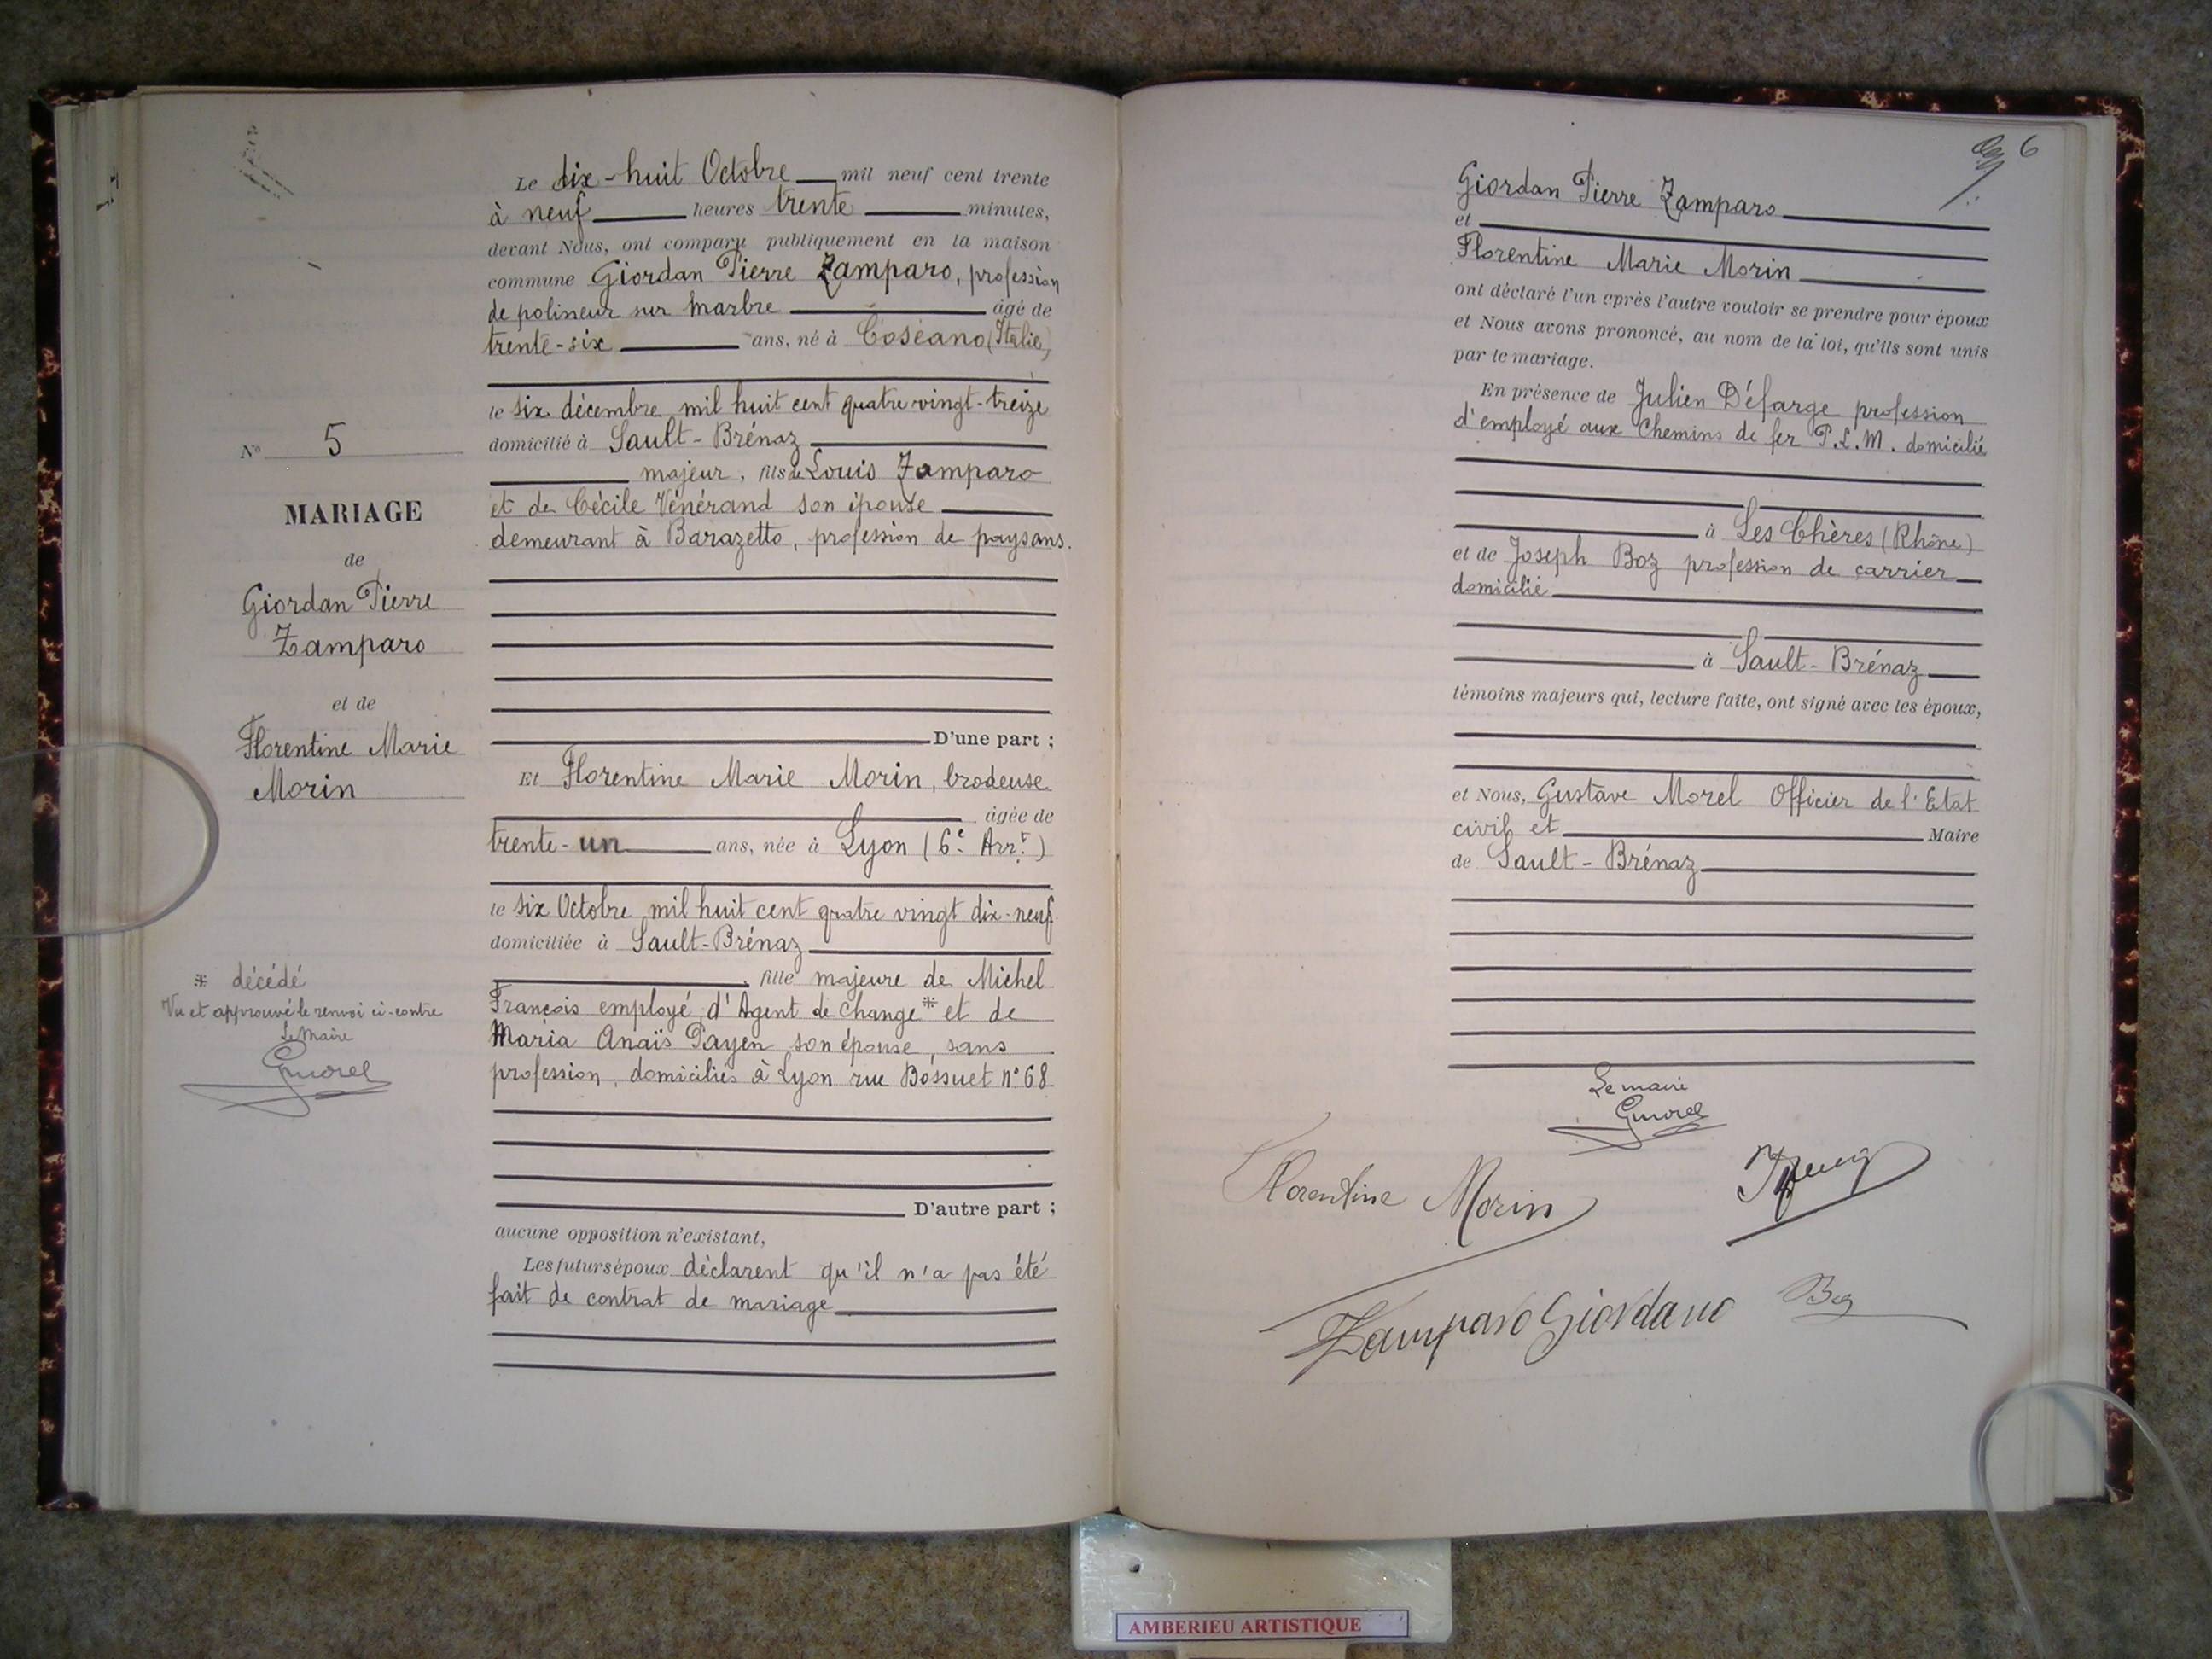 Le dix-huit Octobre mil neuf cent trente
à neuf heures trente minutes,
devant Nous, ont comparu publiquement en la maison
commune Giordan Pierre Zamparo, profession
de polisseur sur marbre âgé de
trente-six ans, né à Coséano (Italie)
le six décembre mil huit cent quatre vingt-treize
domicilié à Sault-Brénaz
majeur, fils de Louis Zamparo
et de Cécile Vénérand son épouse
demeurant à Barazetto, profession de paysans.
D'une part ;
Et Florentine Marie Morin, brodeuse
âgée de
trente-un ans, née à Lyon (6e Arrt)
le six Octobre mil huit cent quatre vingt dix-neuf
domiciliée à Sault-Brénaz
, fille majeure de Michel
François employé d'Agent de change * et de
Maria Anaïs Payen son épouse, sans
profession, domiciliés à Lyon rue Bossuet n° 68
D'autre part ;
aucune opposition n'existant,
Les futurs époux déclarent qu'il n'a pas été
fait de contrat de mariage
N° 5
MARIAGE
de
Giordan Pierre
Zamparo
et de
Florentine Marie
Morin
* décédé
Vu et approuvé le renvoi ci-contre
Le Maire
Gmorel
6
Giordan Pierre Zamparo
et
Florentine Marie Morin
ont déclaré l'un après l'autre vouloir se prendre pour époux
et Nous avons prononcé, au nom de la loi, qu'ils sont unis
par le mariage.
En présence de Julien Défarge profession
d'employé aux Chemins de fer P.L.M. domicilié
à Les Chères (Rhône)
et de Joseph Boz profession de carrier
domicilié
à Sault-Brénaz
témoins majeurs qui, lecture faite, ont signé avec les époux,
et Nous, Gustave Morel Officier de l'Etat
civil et Maire
de Sault-Brénaz
Le maire
Gmorel
Florentine Morin
Zamparo Giordano
Boz
AMBERIEU ARTISTIQUE